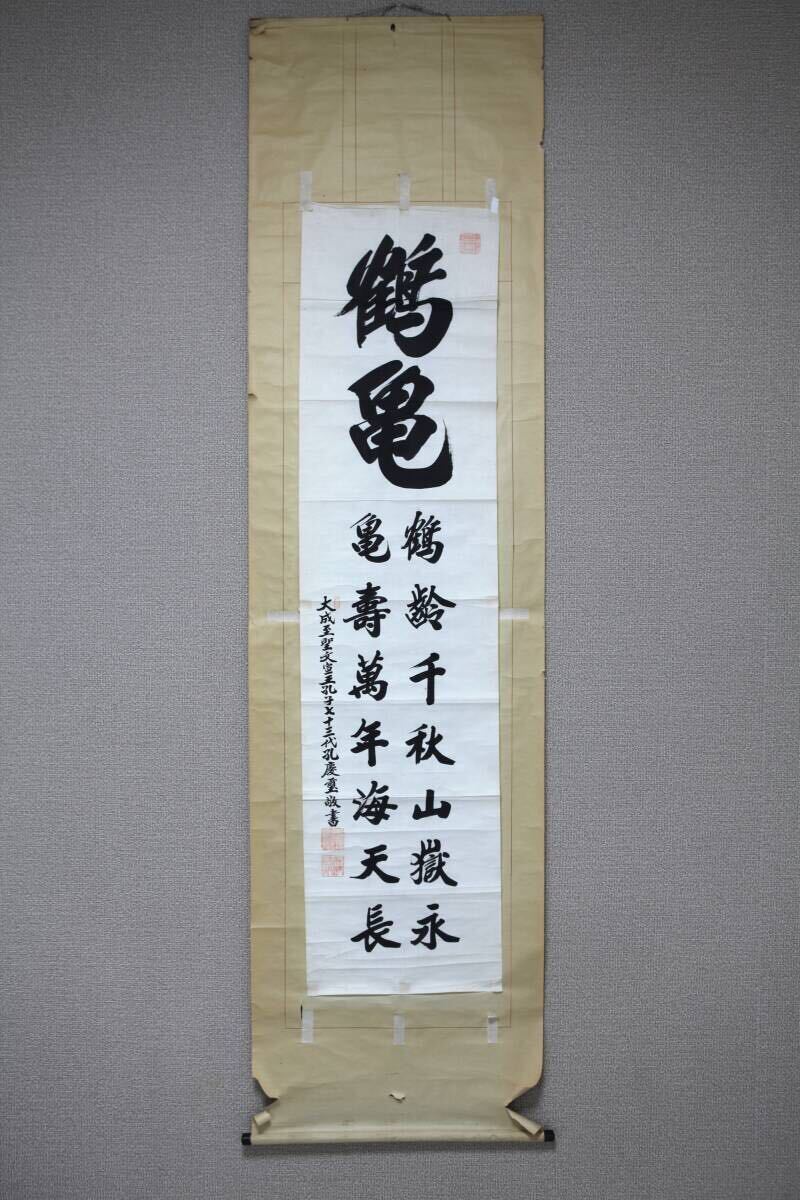 鶴亀
鶴齢千秋山嶽永
亀壽萬年海天長
大成至聖文宣王孔子七十三代孔慶䕫敬書